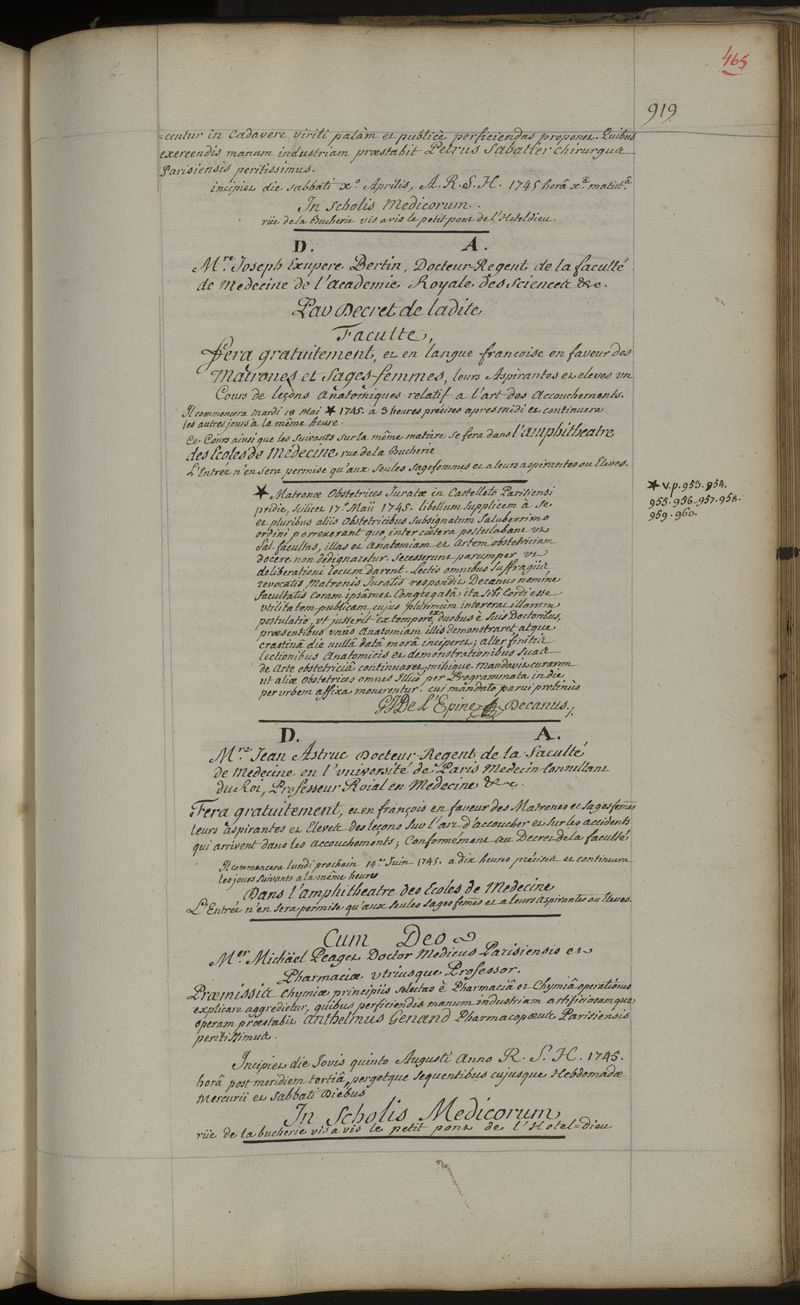 465
919
-centur in Cadavere viriti palàm et publicè perficiendas proponet. Quibus
exercendis manum industriam præstabit Petrus Sabattier Chirurgus
Parisiensis peritissimus.
incipiet die Sabbati x.º Aprilis, A. R. S. H. 1745 horâ x.ª matut.ª
In Scholis Medicorum.
rüe de la Bucherie vis avis le petit pont de l'Hotel Dieu.
D. A.
M.re Joseph Exupere Bertin, Docteur-Regent de la faculté
de Medecine de l'academie Royale des Sciences &c.
Par Decret de ladite
Faculte,
Fera gratuitement, et en langue francoise en faveur des
Matrones et Sages-femmes, leurs Aspirantes et eleves un
Cours de leçons Anatomiques relatif a l'art des Accouchements.
Il commencera Mardi 18 Mai ★ 1745. a 3 heures précises apres midi et continuera
les autres jours à la même heure.
Ce Cours ainsi que les Suivants sur la même matiere se fera dans l'amphitheatre
des Ecoles de Médecine rue de la Bucherie
L'Entrée n'en sera permise qu'aux seules Sagefemmes et a leurs aspirantes ou Eleves.
★ v. p. 953. 954.
955. 956. 957. 958.
959. 960.
★ Matronæ Obstetrices Juratæ in Castelleto Parisiensi
pridie, scilicet 17.ª Maii 1745. libellum Supplicem à Se
et pluribus aliis Obstetricibus Subsignatum Saluberrimo
ordini porrexerant quo, inter cætera postulabant ut
Sal. facultas, illas et Anatomiam et Artem obstetriciam
docere non dedignaretur. Secesserunt parumper ut
deliberationi locum darent. Lectis omnibus Suffragiis
revocatis Matronis Juratis respondit Decanus nomine
facultatis Coram ipsâmet Congregatâ ita Sibi Cordi esse
utilitatem publicam cujus plurimum intererat illarum
postulatio, ut jusserit ex tempore ex duobus è Suis Doctoribus,
præsentibus unus Anatomiam illis demonstraret atque
crastinâ die nullâ datâ morâ inciperet; alter finitis
lectionibus Anatomicis et demonstrationibus Suas
de Arte obstetriciâ continuaret, mihique mandavit curarem
ut aliæ Obstetrices omnes Illico per Programmata in die
per urbem affixa monerentur. cui mandato parui protinùs
GJ De L'Epine Decanus.
D. A.
M.re Jean Astruc Docteur-Regent de la Faculté
de Medecine en l'université de Paris Medecin Consultant
du Roi, Professeur Roial en Medecine &c.
Fera gratuitement, et en françois en faveur des Matrones et Sagesfemes
leurs aspirantes et Eleves des leçons Sur l'art d'accoucher et Sur les accidents
qui arrivent dans les accouchements; Conformément au Decret de la faculté
Il commencera lundi prochain 14.e Juin 1745. a dix heures précises et continuera
les jours suivants a la même heure
Dans l'amphitheatre des Ecoles de Medecine
L'Entrée n'en sera permise qu'aux seules Sages femes et a leurs aspirantes ou Eleves.
Cum Deo
M.er Michäel Peaget Doctor Medicus Parisiensis et
Pharmaciæ utriusque Professor.
Præmissis Chymiæ principiis Selectas è Pharmaciâ et Chymiâ operationes
explicare aggredietur, quibus perficiendis manum industriam artificiosamque
operam præstabit Anthelmus Genand Pharmacopœus Parisiensis
peritissimus.
Incipiet die Jovis quinto Augusti Anno R. S. H. 1745.
horâ post meridiem tertiâ, pergetque sequentibus cujusque Hebdomadæ
Mercurii et Sabbati Diebus
In Scholis Medicorum
rüe de la bucherie vis a vis le petit pont de l'Hotel-Dieu